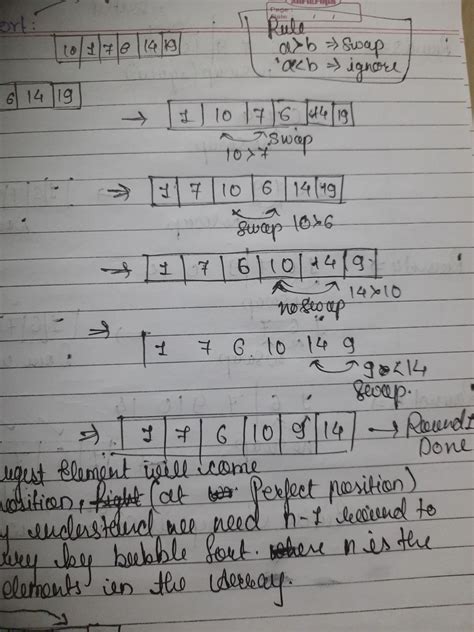 ort:
Rule
a>b => swap
a<b => ignore
10 | 1 | 7 | 6 | 14 | 19
6 | 14 | 19
→ 1 | 10 | 7 | 6 | 14 | 19
swap
10>7
→ 1 | 7 | 10 | 6 | 14 | 19
swap 10>6
→ 1 | 7 | 6 | 10 | 14 | 9
no swap 14>10
⇒ 1 7 6 10 14 9
9<14
swap.
⇒ 1 | 7 | 6 | 10 | 9 | 14 → Round 1
Done
element will come
position, (at Perfect position)
understand we need n-1 round to
by bubble sort. where n is the
elements in the array.